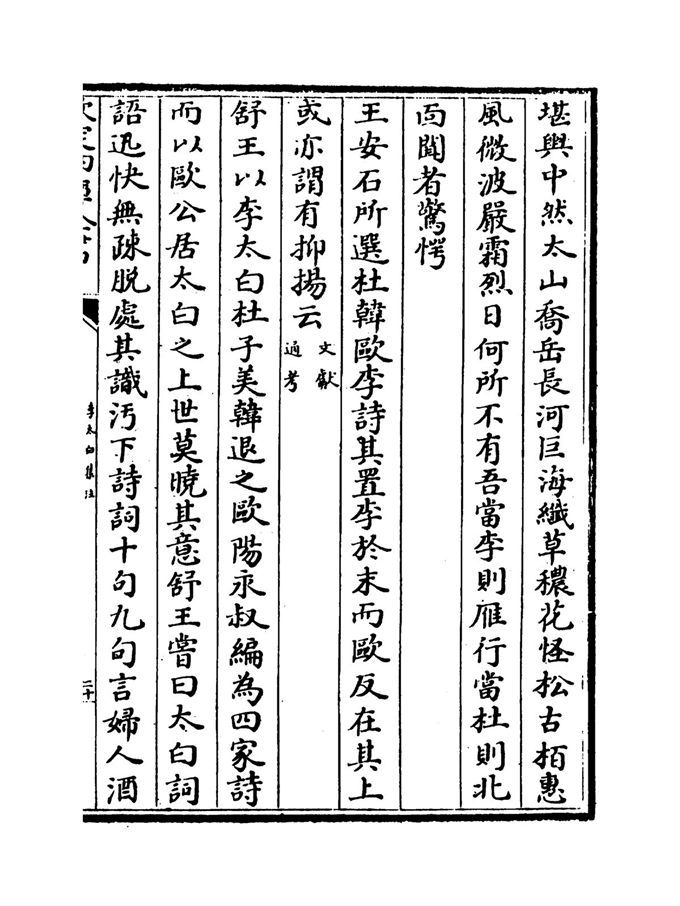 堪輿中然太山喬岳長河巨海纖草穠花怪松古栢惠
風微波嚴霜烈日何所不有吾當李則雁行當杜則北
面聞者驚愕
王安石所選杜韓歐李詩其置李於末而歐反在其上
或亦謂有抑揚云文獻
通考
舒王以李太白杜子美韓退之歐陽永叔編為四家詩
而以歐公居太白之上世莫曉其意舒王嘗曰太白詞
語迅快無疎脱處其識汚下詩詞十句九句言婦人酒
李太白集注
二十